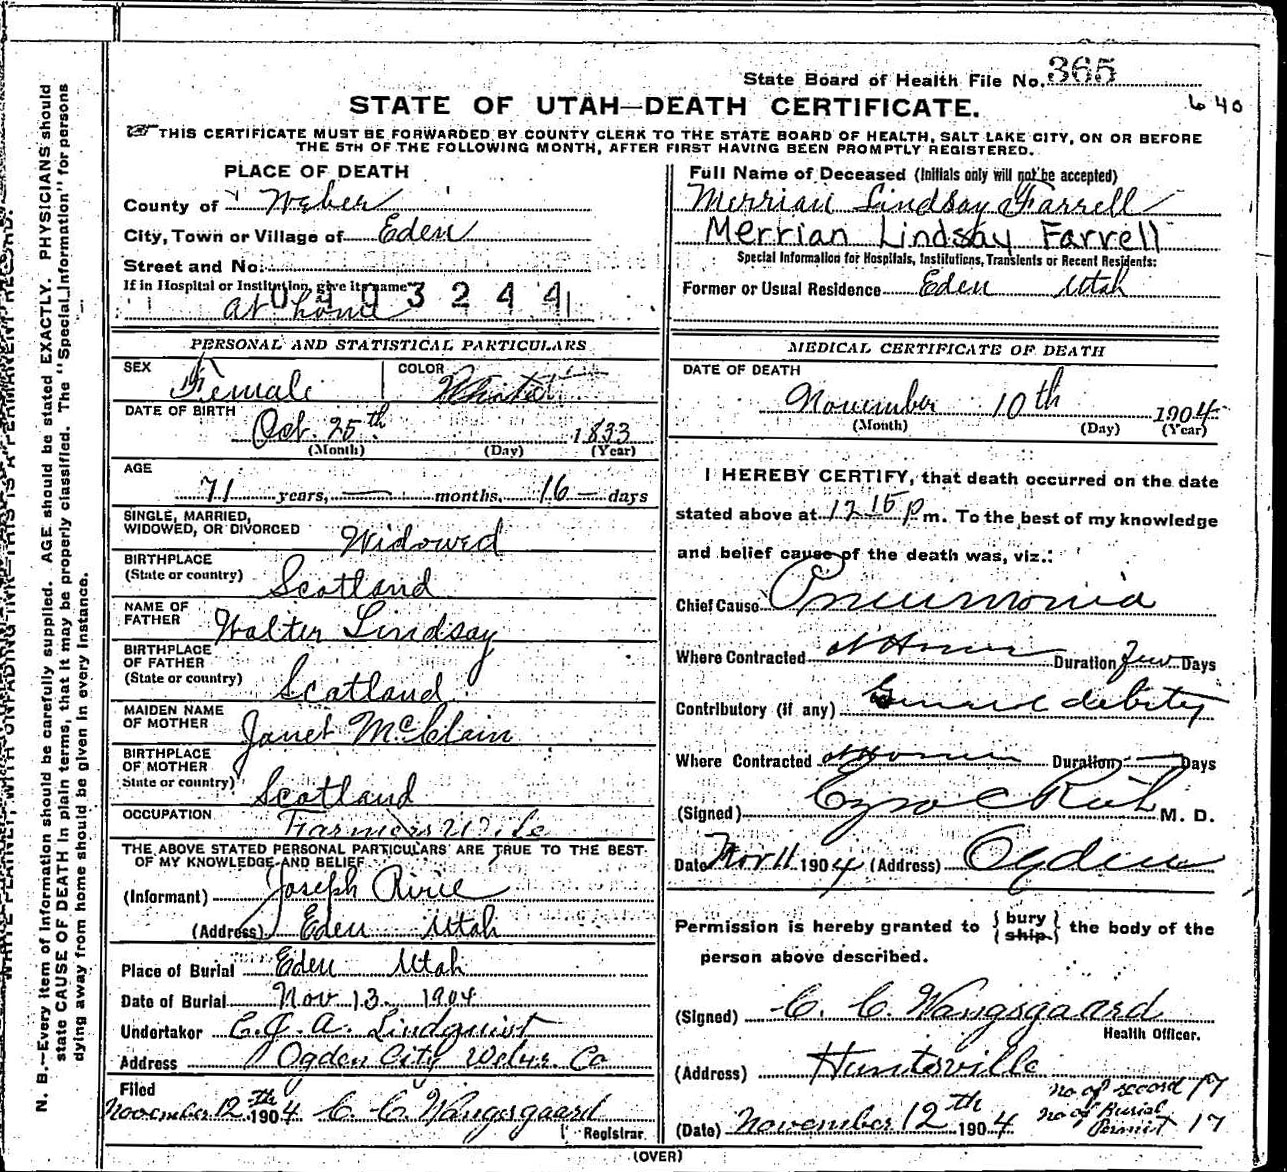 State Board of Health File No. 365
6 40
STATE OF UTAH—DEATH CERTIFICATE.
THIS CERTIFICATE MUST BE FORWARDED BY COUNTY CLERK TO THE STATE BOARD OF HEALTH, SALT LAKE CITY, ON OR BEFORE
THE 5TH OF THE FOLLOWING MONTH, AFTER FIRST HAVING BEEN PROMPTLY REGISTERED.
PLACE OF DEATH
County of Weber
City, Town or Village of Eden
Street and No.
If in Hospital or Institution, give its name
0403244
at home
Full Name of Deceased (Initials only will not be accepted)
Merrian Lindsay Farrell
Merrian Lindsay Farrell
Special Information for Hospitals, Institutions, Transients or Recent Residents:
Former or Usual Residence Eden Utah
PERSONAL AND STATISTICAL PARTICULARS
SEX Female COLOR White
DATE OF BIRTH
Oct. 25th 1833
(Month) (Day) (Year)
AGE
71 years, — months, 16 — days
SINGLE, MARRIED,
WIDOWED, OR DIVORCED Widowed
BIRTHPLACE
(State or country) Scotland
NAME OF
FATHER Walter Lindsay
BIRTHPLACE
OF FATHER
(State or country) Scotland
MAIDEN NAME
OF MOTHER Janet McClain
BIRTHPLACE
OF MOTHER
State or country) Scotland
OCCUPATION Farmers Wife
THE ABOVE STATED PERSONAL PARTICULARS ARE TRUE TO THE BEST
OF MY KNOWLEDGE AND BELIEF
(Informant) Joseph
(Address) Eden Utah
Place of Burial Eden Utah
Date of Burial Nov 13 1904
Undertaker C. J. A. Lindquist
Address Ogden City Weber Co
Filed
November 12th 1904 C. C. Wangsgaard
Registrar.
MEDICAL CERTIFICATE OF DEATH
DATE OF DEATH
November 10th 1904
(Month) (Day) (Year)
I HEREBY CERTIFY, that death occurred on the date
stated above at 12 15 p m. To the best of my knowledge
and belief cause of the death was, viz.:
Chief Cause Pneumonia
Where Contracted at Home Duration few Days
Contributory (if any) General debility
Where Contracted at Home Duration — Days
(Signed) M. D.
Date Nov 11 1904 (Address) Ogden
Permission is hereby granted to {bury
{ship} the body of the
person above described.
(Signed) C. C. Wangsgaard
Health Officer.
(Address) Huntsville
no of record 17
no of Burial
Permit 17
(Date) November 12th 1904
(OVER)
N. B.—Every item of information should be carefully supplied. AGE should be stated EXACTLY. PHYSICIANS should
state CAUSE OF DEATH in plain terms, that it may be properly classified. The "Special Information" for persons
dying away from home should be given in every instance.